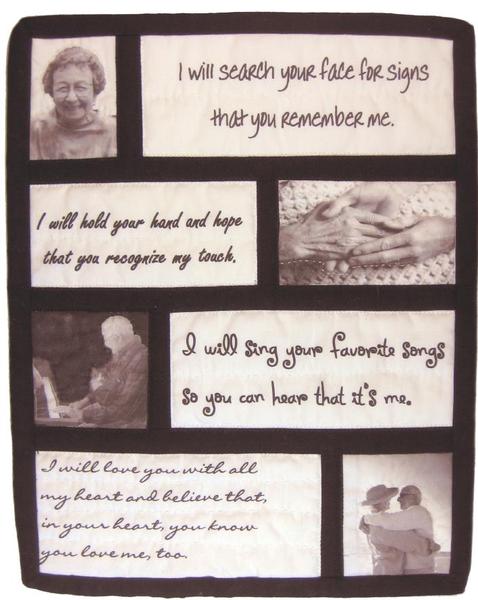 I will search your face for signs
that you remember me.
I will hold your hand and hope
that you recognize my touch.
I will sing your favorite songs
so you can hear that it's me.
I will love you with all
my heart and believe that,
in your heart, you know
you love me, too.